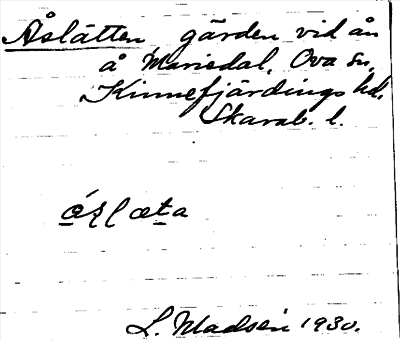 Åslätten gärden vid ån
å Mariedal, Ova sn.
Kinnefjärdings hd.
Skarab. l.
L. Madsén 1930.